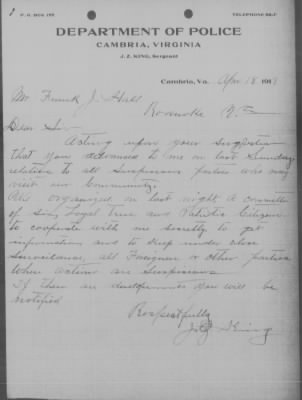 P. O. BOX 102
TELEPHONE
DEPARTMENT OF POLICE
CAMBRIA, VIRGINIA
J. Z. KING, Sergeant
Cambria, Va. Apr 18 191
Mr Frank J. Hall
Roanoke Va
Dear Sir
Acting upon your Suggestion
that you advanced to me on last Sunday
relative to all Suspicious parties who may
visit our Community.
We organized on last night a committee
of Six Loyal True and Patriotic Citizens
to cooperate with me secretly to get
information and to keep under close
Surveillance, all Foreigner or other parties
whose Actions are Suspicious
If there are developments you will be
notified
Respectfully
J Z King